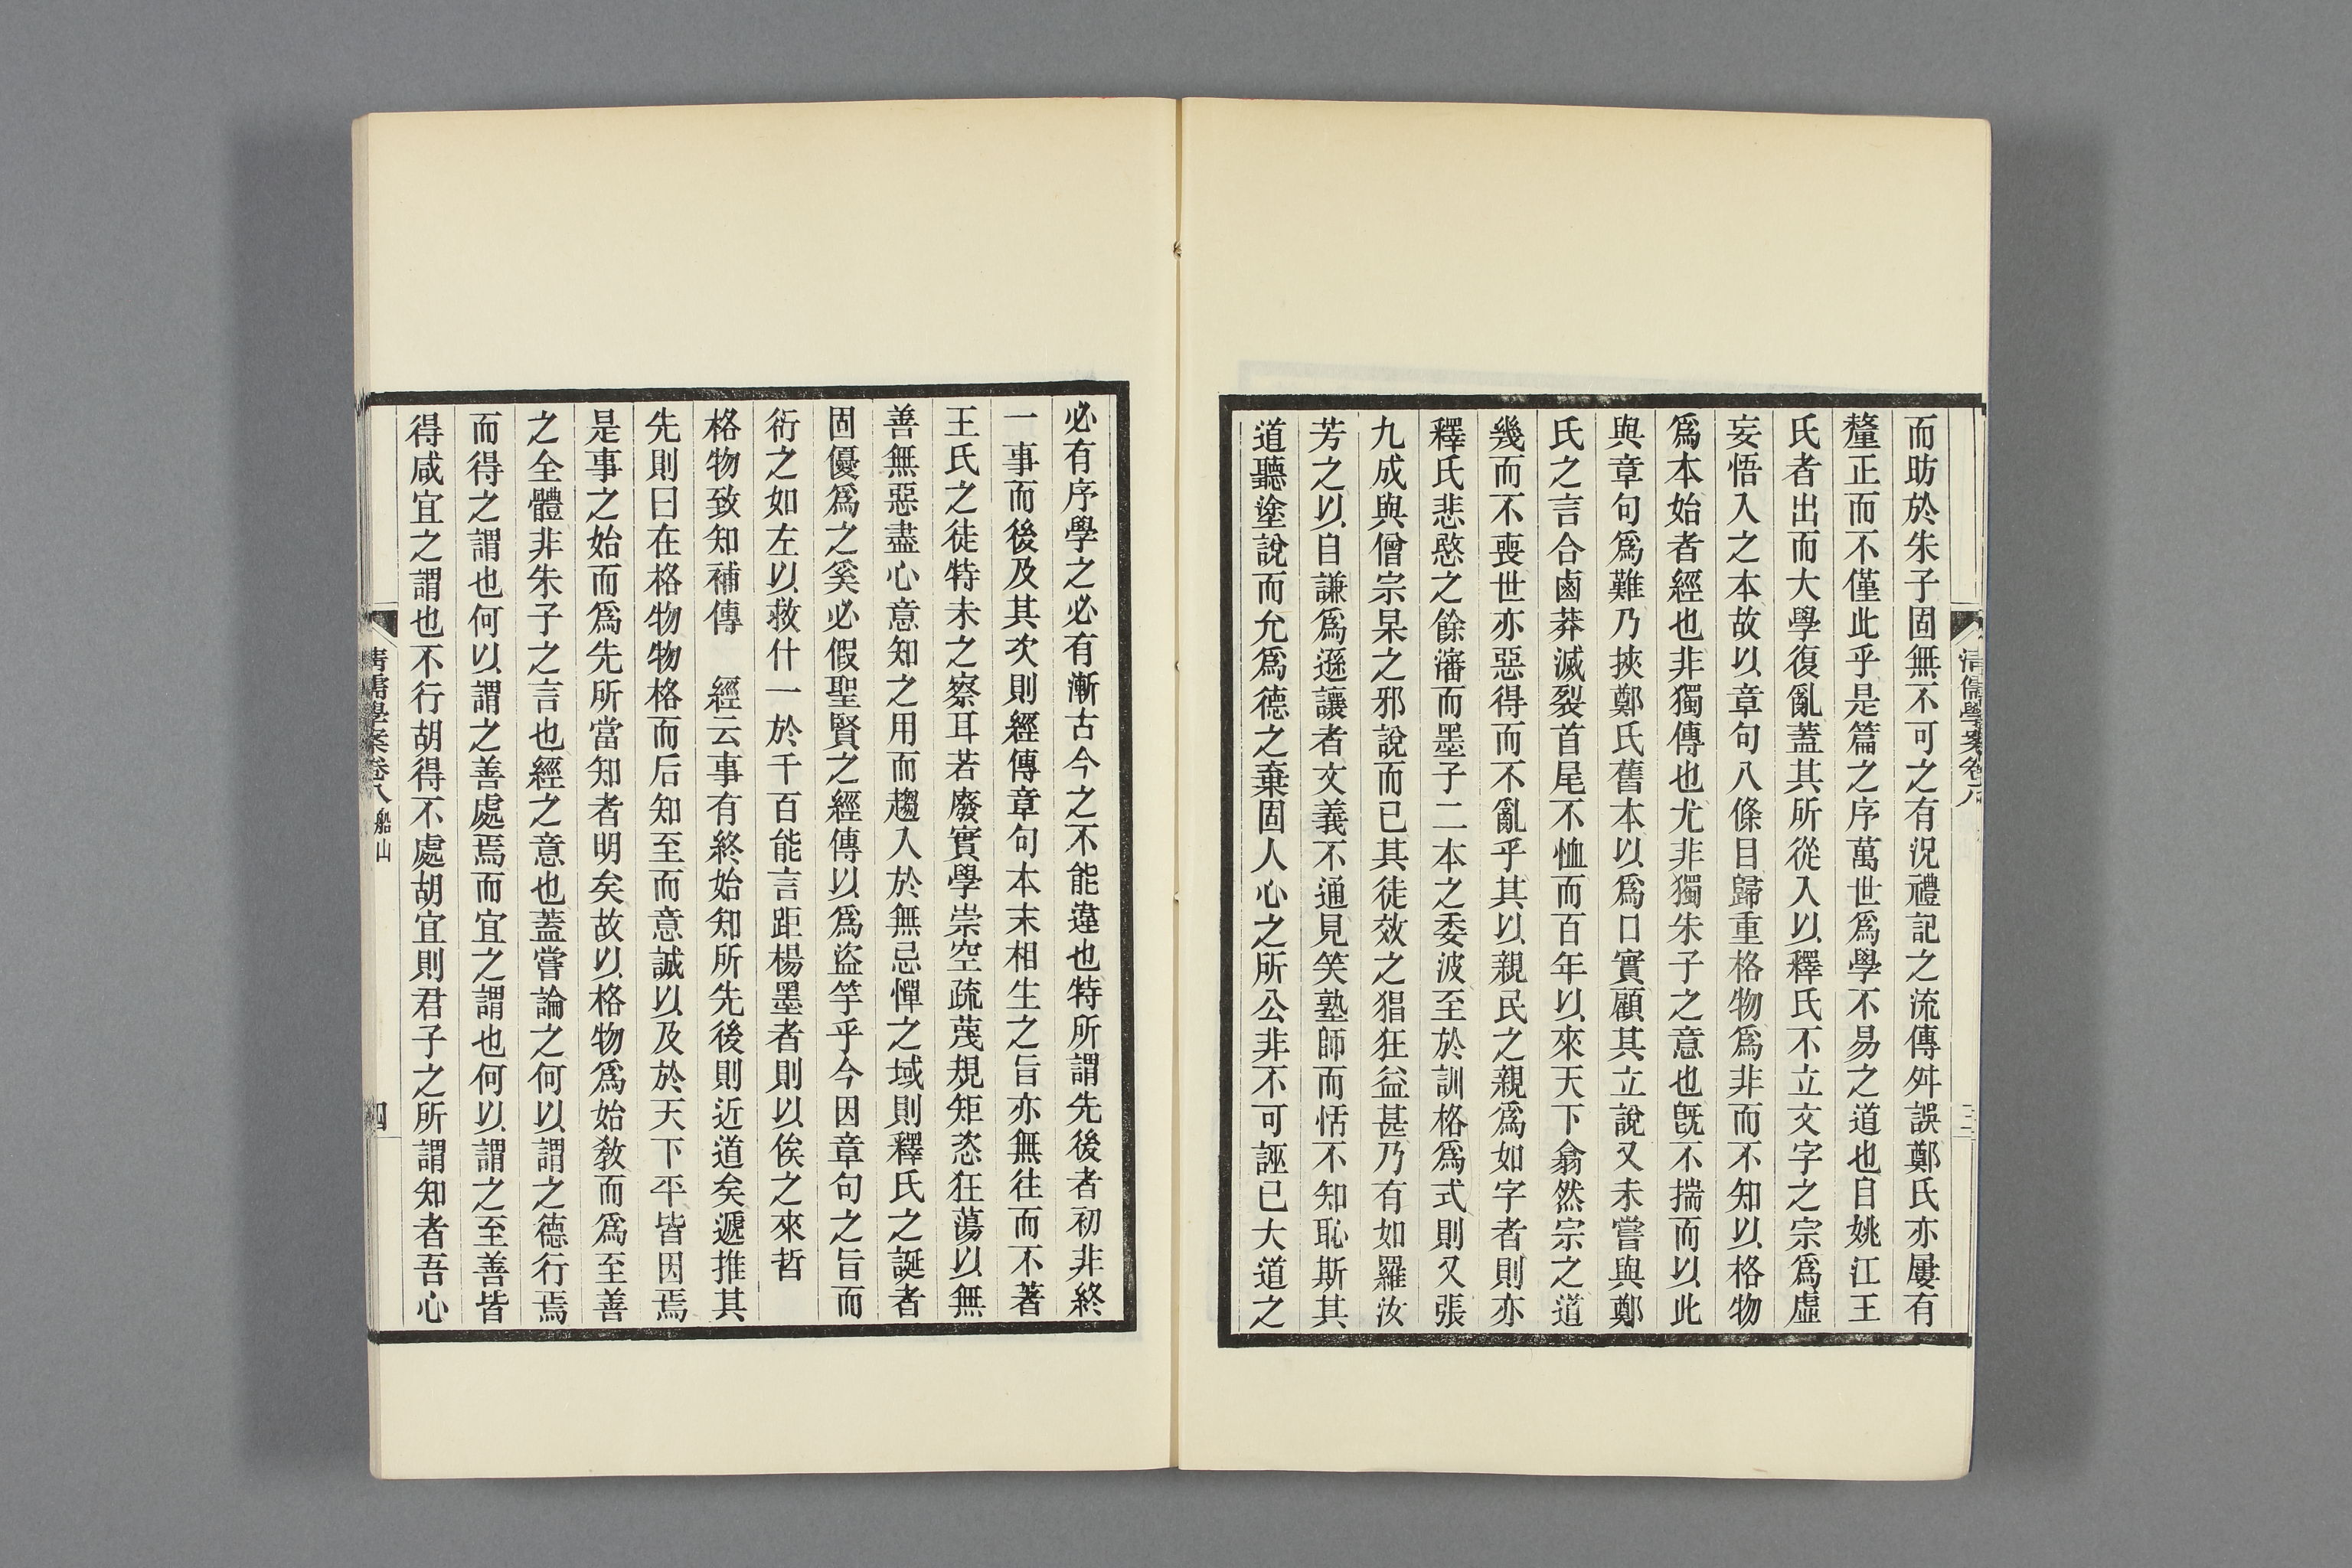 清儒學案卷八
三
而昉於朱子固無不可之有況禮記之流傳舛誤鄭氏亦屢有
釐正而不僅此乎是篇之序萬世爲學不易之道也自姚江王
氏者出而大學復亂蓋其所從入以釋氏不立文字之宗爲虛
妄悟入之本故以章句八條目歸重格物爲非而不知以格物
爲本始者經也非獨傳也尤非獨朱子之意也旣不揣而以此
與章句爲難乃挾鄭氏舊本以爲口實顧其立說又未嘗與鄭
氏之言合鹵莽滅裂首尾不恤而百年以來天下翕然宗之道
幾而不喪世亦惡得而不亂乎其以親民之親爲如字者則亦
釋氏悲愍之餘瀋而墨子二本之委波至於訓格爲式則又張
九成與僧宗杲之邪說而已其徒效之猖狂益甚乃有如羅汝
芳之以自謙爲遜讓者文義不通見笑塾師而恬不知恥斯其
道聽塗說而允爲德之棄固人心之所公非不可誣已大道之
必有序學之必有漸古今之不能違也特所謂先後者初非終
一事而後及其次則經傳章句本末相生之旨亦無往而不著
王氏之徒特未之察耳若廢實學崇空疏蔑規矩恣狂蕩以無
善無惡盡心意知之用而趨入於無忌憚之域則釋氏之誕者
固優爲之奚必假聖賢之經傳以爲盜竽乎今因章句之旨而
衍之如左以救什一於千百能言距楊墨者則以俟之來哲
格物致知補傳　經云事有終始知所先後則近道矣遞推其
先則曰在格物物格而后知至而意誠以及於天下平皆因焉
是事之始而爲先所當知者明矣故以格物爲始敎而爲至善
之全體非朱子之言也經之意也蓋嘗論之何以謂之德行焉
而得之謂也何以謂之善處焉而宜之謂也何以謂之至善皆
得咸宜之謂也不行胡得不處胡宜則君子之所謂知者吾心
清儒學案卷八 船山
四